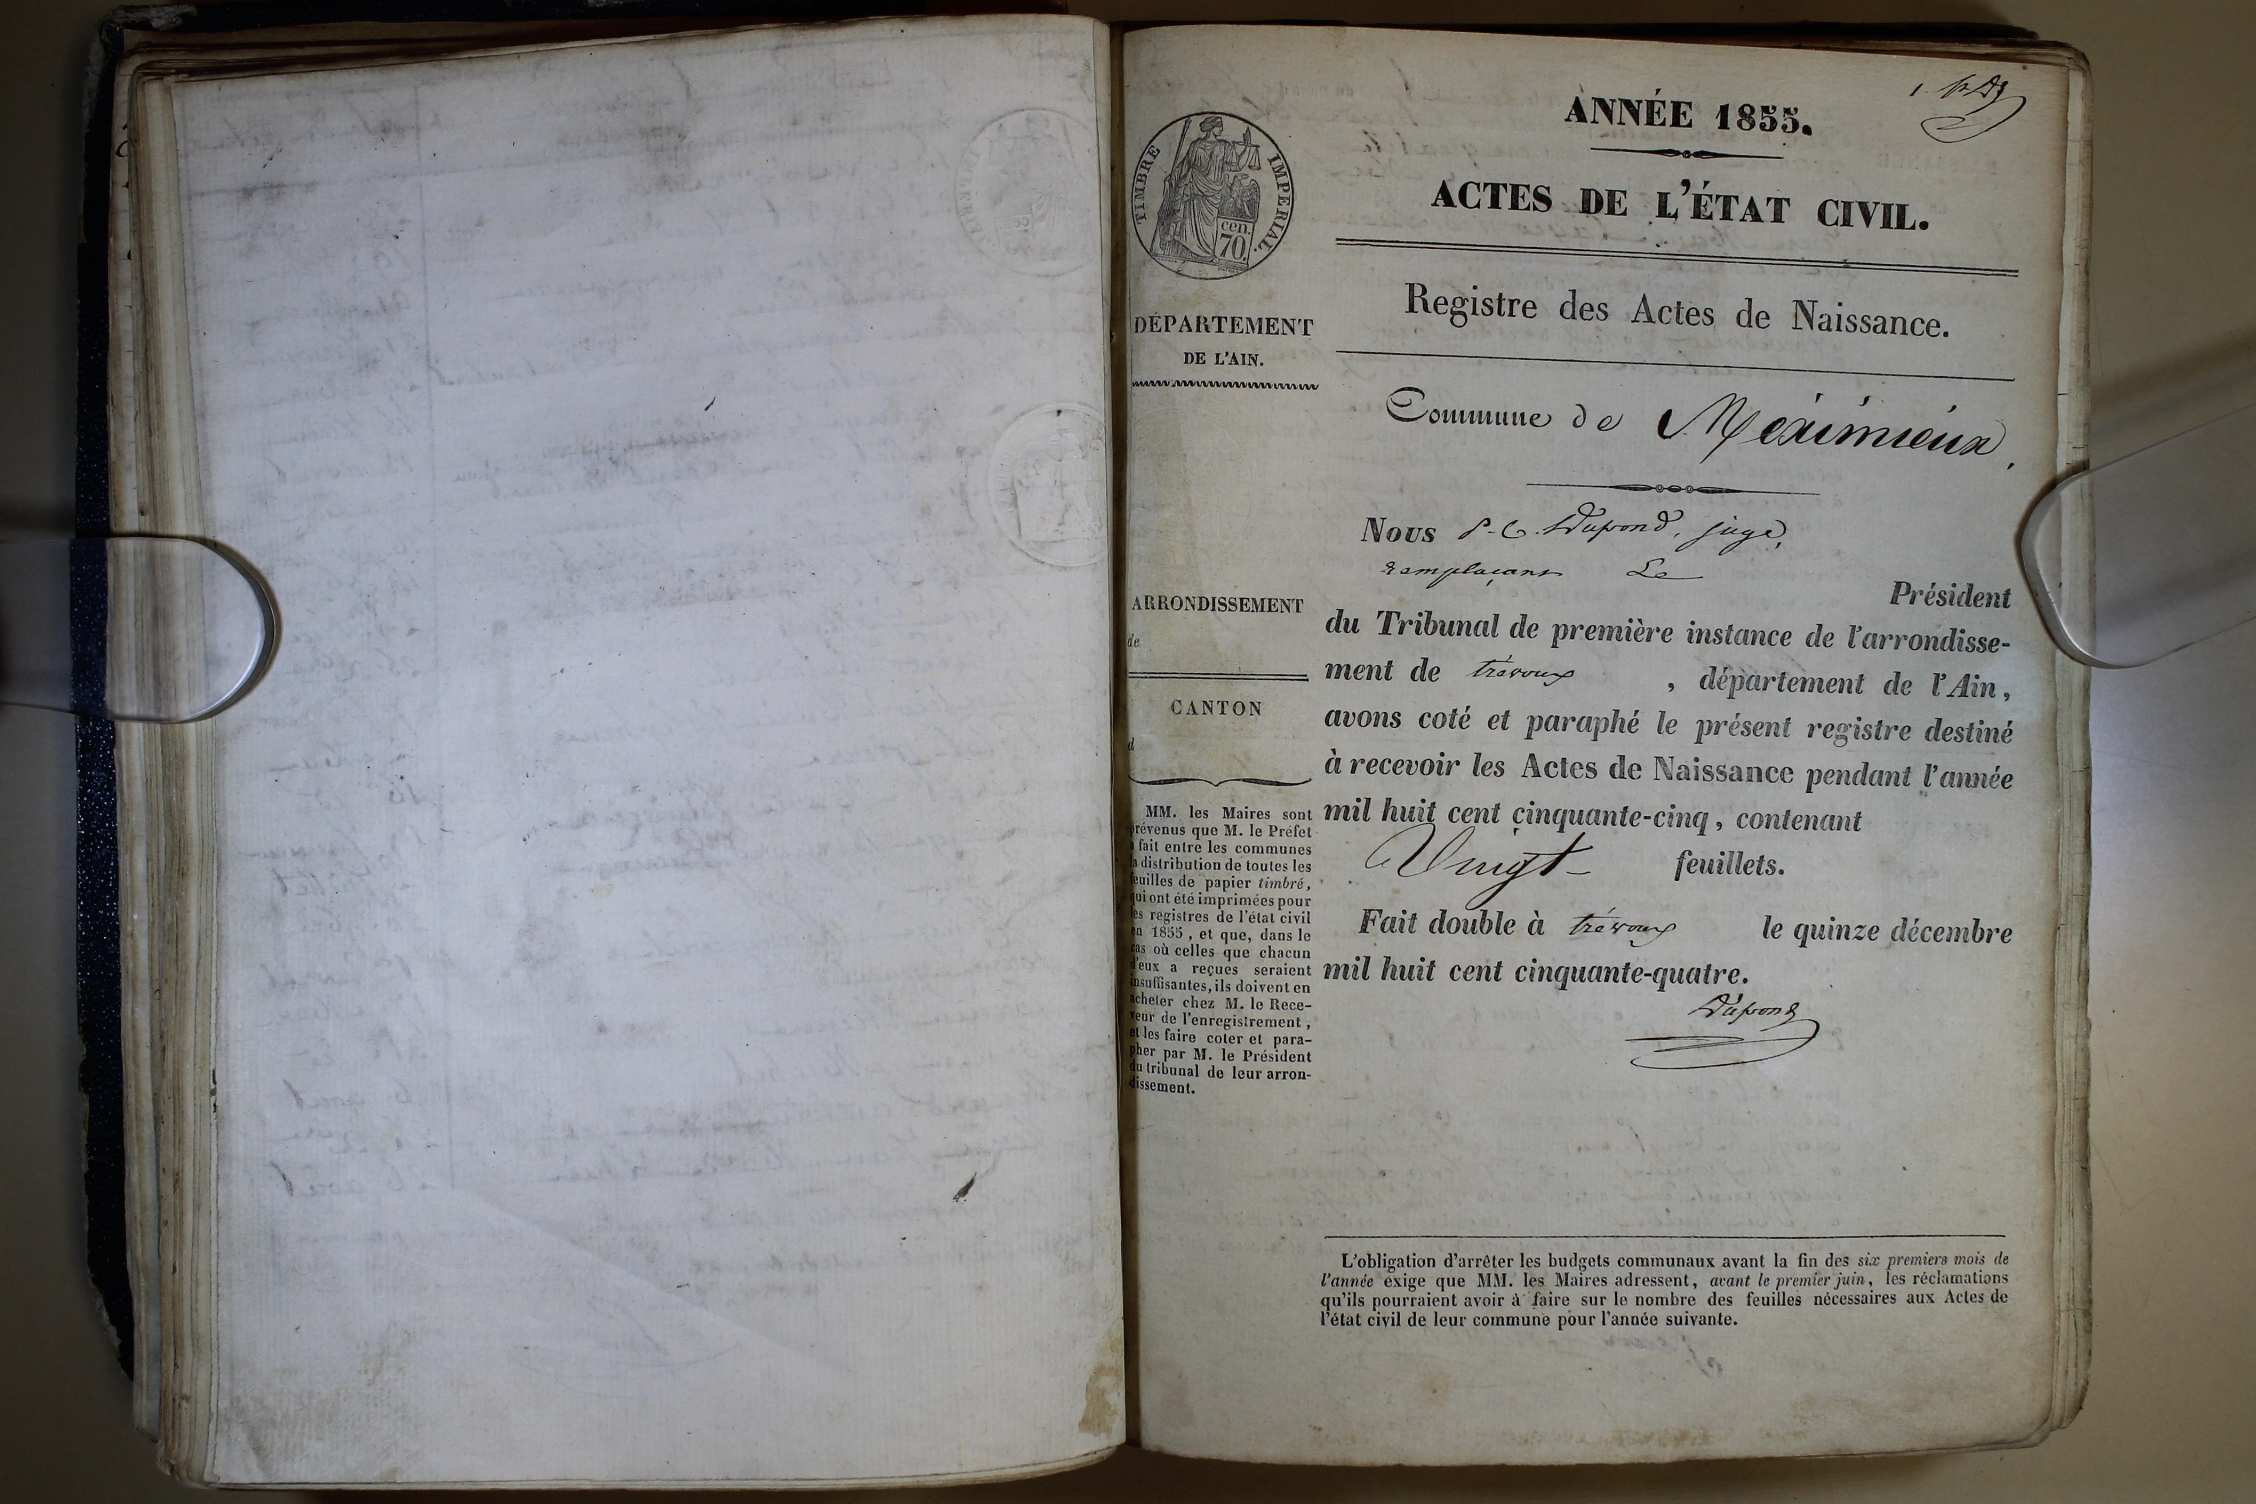 ANNÉE 1855.
ACTES DE L'ÉTAT CIVIL.
TIMBRE IMPERIAL.
cen.
70.
Registre des Actes de Naissance.
DÉPARTEMENT
DE L'AIN.
Commune de Meximieux,
Nous P. C. Dupond, juge,
remplaçant Le
Président
du Tribunal de première instance de l'arrondisse-
ment de trévoux, département de l'Ain,
avons coté et paraphé le présent registre destiné
à recevoir les Actes de Naissance pendant l'année
mil huit cent cinquante-cinq, contenant
Vingt feuillets.
Fait double à trévoux le quinze décembre
mil huit cent cinquante-quatre.
Dupond
ARRONDISSEMENT
de
CANTON
d
MM. les Maires sont
prévenus que M. le Préfet
a fait entre les communes
la distribution de toutes les
feuilles de papier timbré,
qui ont été imprimées pour
les registres de l'état civil
en 1855, et que, dans le
cas où celles que chacun
d'eux a reçues seraient
insuffisantes, ils doivent en
acheter chez M. le Rece-
veur de l'enregistrement,
et les faire coter et para-
pher par M. le Président
du tribunal de leur arron-
dissement.
L'obligation d'arrêter les budgets communaux avant la fin des six premiers mois de
l'année exige que MM. les Maires adressent, avant le premier juin, les réclamations
qu'ils pourraient avoir à faire sur le nombre des feuilles nécessaires aux Actes de
l'état civil de leur commune pour l'année suivante.